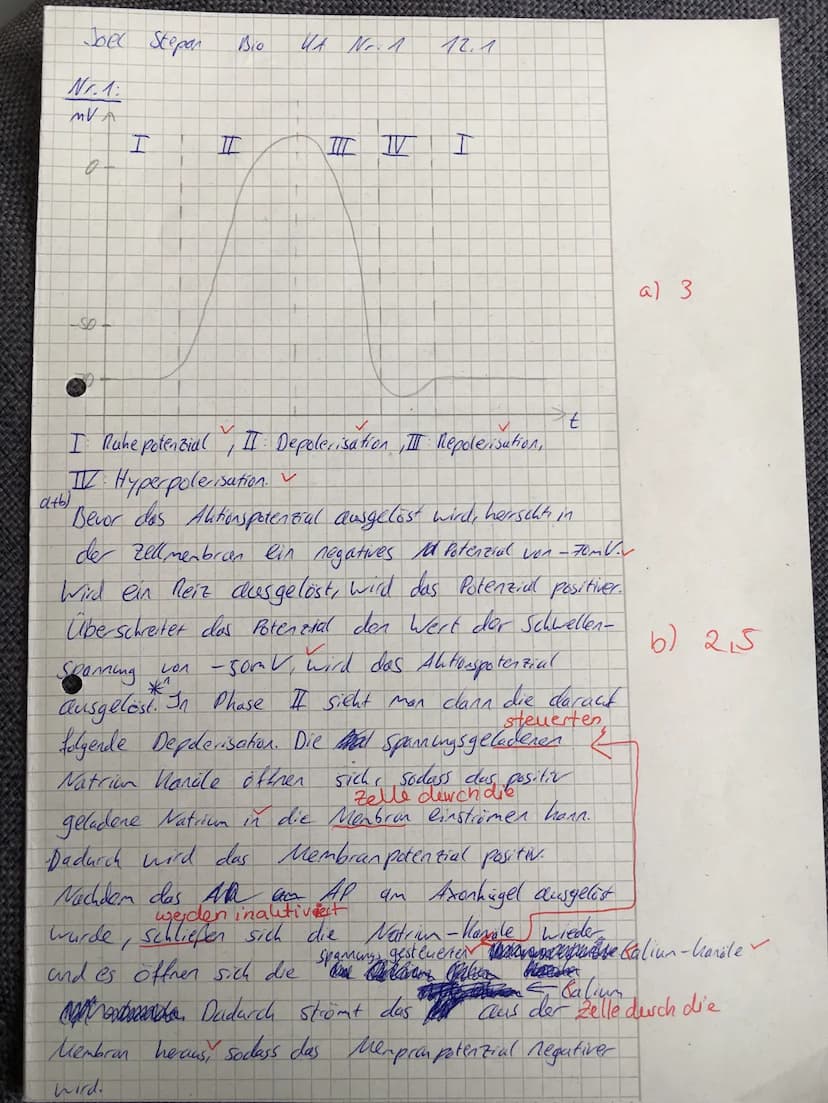 Joel Stepan Bio KA Nr. 1 12.1
Nr.1:
mV
I II III IV I
0
a) 3
-50
t
I Ruhepotenzial ✓, II: Depolerisation ✓, III Repolerisation, ✓
IV: Hyperpolerisation. ✓
a+b)
Bevor das Aktionspotenzial ausgelöst wird, herrscht in
der Zellmenbran ein negatives Potenzial von -70mV. ✓
Wird ein Reiz ausgelöst, wird das Potenzial positiver.
Überschreitet das Potenzial den Wert der Schwellen-
b) 2,5
spannung von -50mV, ✓ wird das Aktionspotenzial
ausgelöst. *1 In Phase II sieht man dann die darauf
steuerten
folgende Depolerisation. Die spannungsgeladenen
Natrium Kanäle öffnen sich, sodass das positiv
Zelle durch die
geladene Natrium ✓ in die Menbran einströmen kann.
Dadurch wird das Membranpotenzial positiv.
Nachdem das AP am Axonhügel ausgelöst
werden inaktiviert
wurde, schließen sich die Natrium-Kanäle wieder
spannungsgesteuerten ✓ Kalium-Kanäle ✓
und es öffnen sich die
← Kalium
Dadurch strömt das aus der Zelle durch die
Membran heraus, ✓ sodass das Menpranpotenzial negativer
wird.